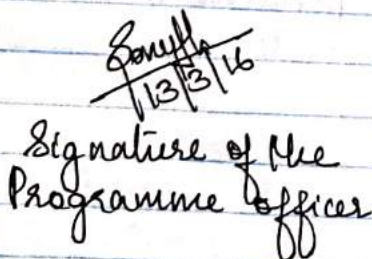 13/3/16
Signature of the
Programme officer